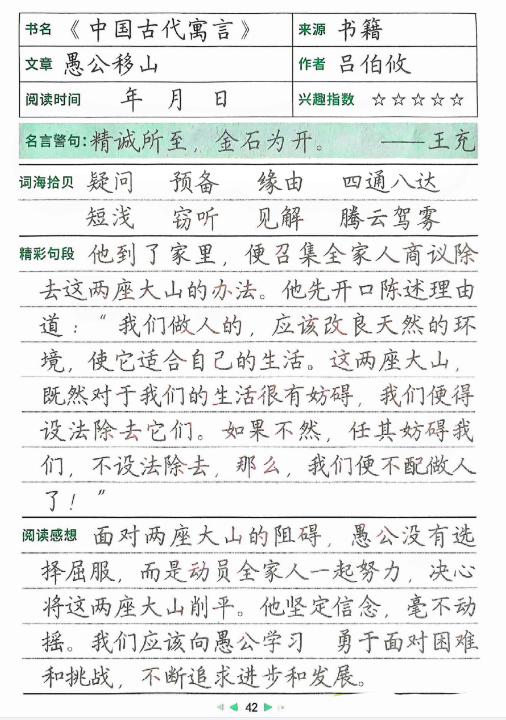 书名 《中国古代寓言》 来源 书籍
文章 愚公移山 作者 吕伯攸
阅读时间 年 月 日 兴趣指数 ☆☆☆☆☆
名言警句:精诚所至,金石为开。 ——王充
词海拾贝 疑问 预备 缘由 四通八达
短浅 窃听 见解 腾云驾雾
精彩句段 他到了家里,便召集全家人商议除
去这两座大山的办法。他先开口陈述理由
道:“我们做人的,应该改良天然的环
境,使它适合自己的生活。这两座大山,
既然对于我们的生活很有妨碍,我们便得
设法除去它们。如果不然,任其妨碍我
们,不设法除去,那么,我们便不配做人
了!”
阅读感想 面对两座大山的阻碍,愚公没有选
择屈服,而是动员全家人一起努力,决心
将这两座大山削平。他坚定信念,毫不动
摇。我们应该向愚公学习 勇于面对困难
和挑战,不断追求进步和发展。
42